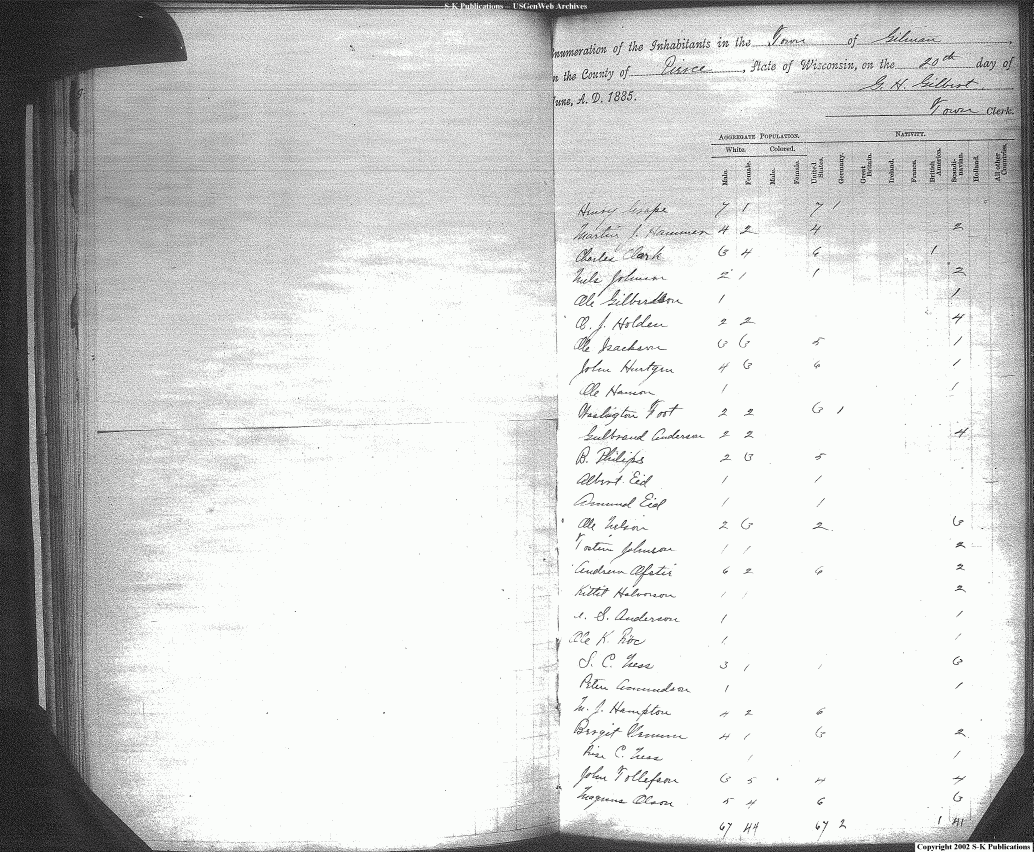 S-K Publications – USGenWeb Archives
Enumeration of the Inhabitants in the Town of Gilman,
in the County of Pierce, State of Wisconsin, on the 20th day of
June, A. D. 1885. G. H. Gilbert,
Town Clerk.
AGGREGATE POPULATION. NATIVITY.
White. Colored.
Male. Female. Male. Female. United States. Germany. Great Britain. Ireland. France. British America. Scandinavian. Holland. All other Countries.
Henry 7 1 7 1
Martin J. Hammer 4 2 4 2
Charles Clark 3 4 6 1
Nels Johnson 2 1 1 2
Ole Gilbertson 1 1
O. J. Holden 2 2 4
Ole Isackson 3 3 5 1
John Hurtgen 4 3 6 1
Ole Hanson 1 1
Washington Foot 2 2 3 1
Gulbrand Anderson 2 2 4
B. Philips 2 3 5
Albert Eid 1 1
Amund Eid 1 1
Ole Nelson 2 3 2 3
Tostin Johnson 1 1 2
Andrew 6 2 6 2
Kittil Halvorson 1 1 2
S. Anderson 1 1
Ole K. 1 1
S. C. 3 1 1 3
Peter Amundson 1 1
M. J. Hampton 4 2 6
Birgit 4 1 3 2
C. 1 1
John Tollefson 3 5 4 4
Magnus Olson 5 4 6 3
67 44 67 2 1 41
Copyright 2002 S-K Publications